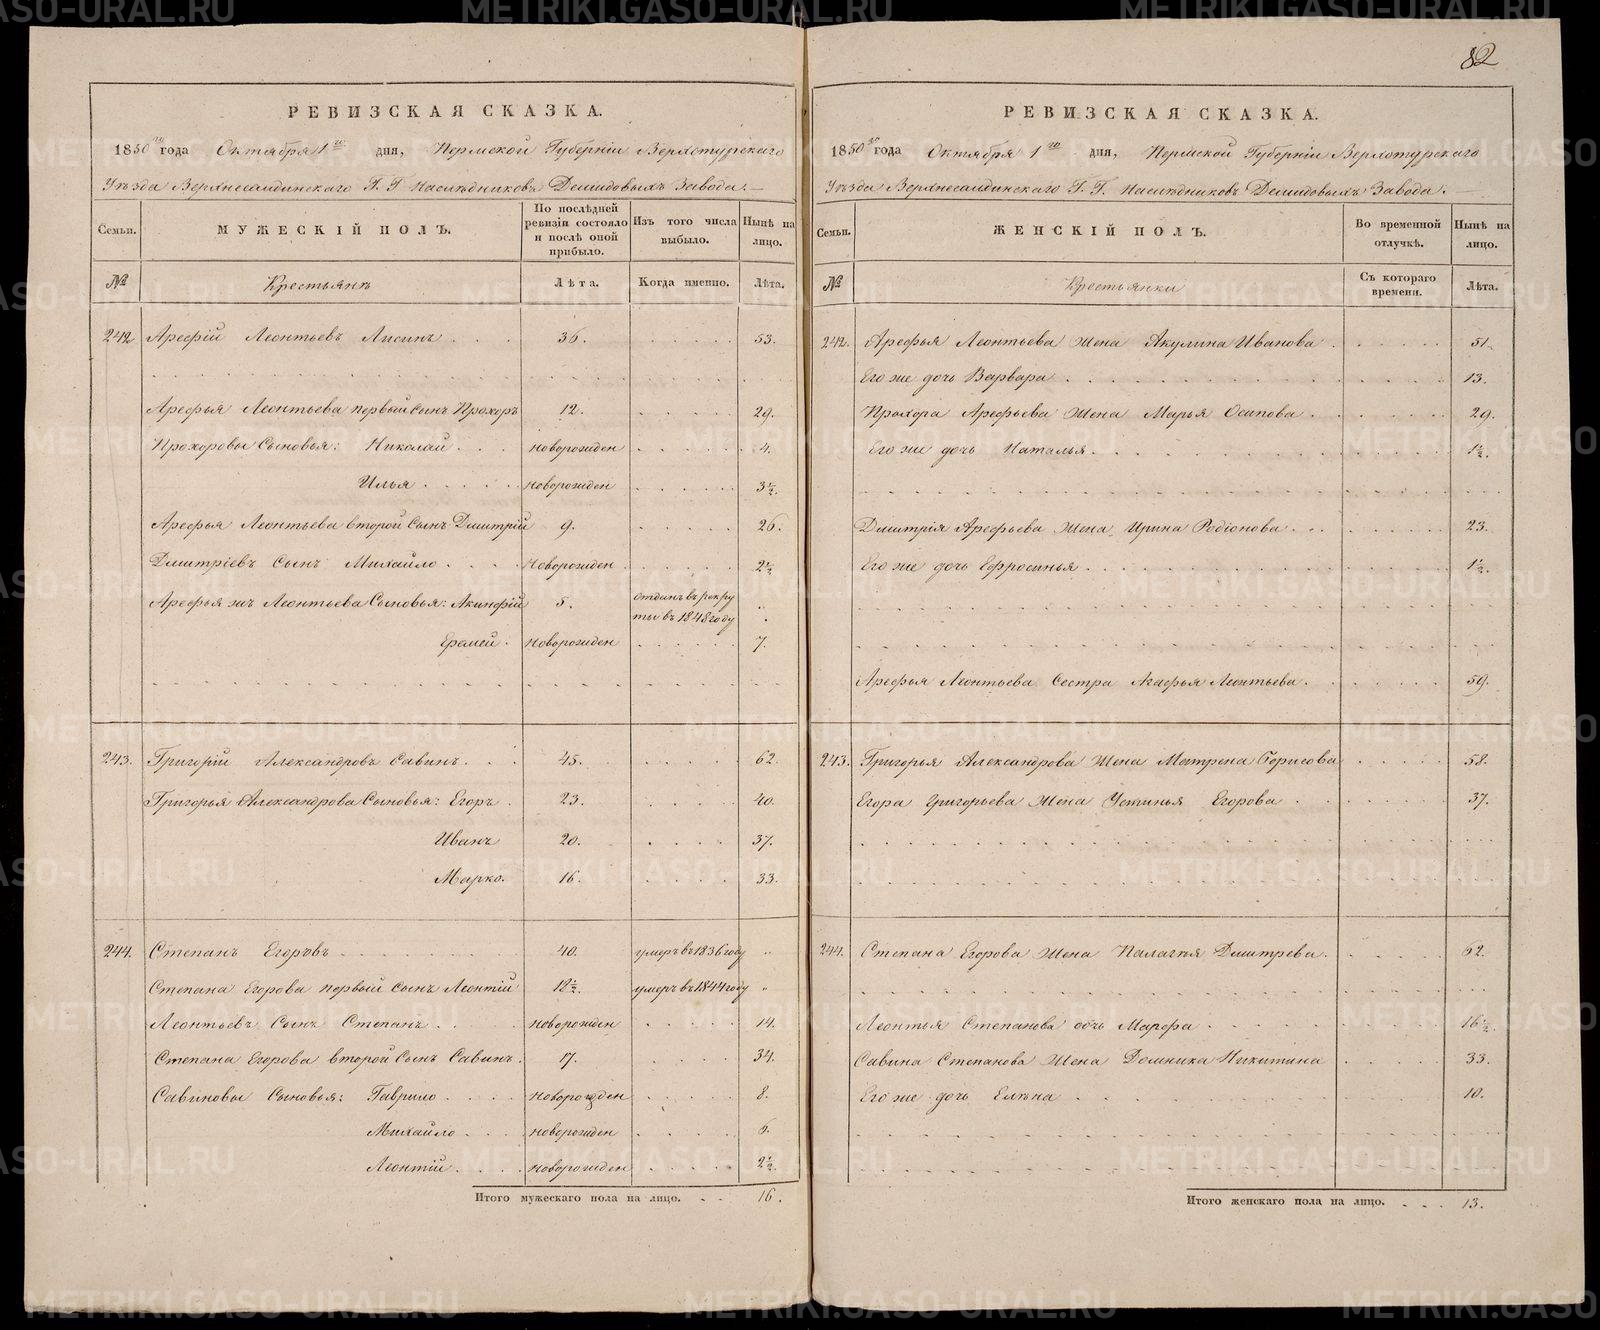 82
РЕВИЗСКАЯ СКАЗКА.
1850го года Октября 1го дня, Пермской Губерніи Верхотурскаго
Уѣзда Верхнесалдинскаго Г. Г. Наслѣдниковъ Демидовыхъ Завода.
Семьи. МУЖЕСКІЙ ПОЛЪ. По послѣдней ревизіи состояло и послѣ оной прибыло. Изъ того числа выбыло. Нынѣ на лицо.
№ Крестьянъ Лѣта. Когда именно. Лѣта.
242 Арефій Леонтьевъ Лисинъ 36. 53.
Арефья Леонтьева первый сынъ Прохоръ 12. 29.
Прохоровы Сыновья: Николай новорожден 4.
Илья новорожден 3½.
Арефья Леонтьева второй сынъ Дмитрій 9. 26.
Дмитріевъ Сынъ Михайло Новорожден 2½
Арефья жъ Леонтьева Сыновья: Акинфій 5. отданъ в рекру
ты въ 1848 году
Еремей новорожден 7.
243. Григорій Александровъ Савинъ 45. 62.
Григорья Александрова Сыновья: Егоръ 23. 40.
Иванъ 20. 37.
Марко. 16. 33.
244. Степанъ Егоровъ 40. умеръ въ 1836 году
Степана Егорова первый сынъ Леонтій 18½. умеръ въ 1844 году
Леонтьевъ Сынъ Степанъ новорожден 14.
Степана Егорова второй сынъ Савинъ. 17. 34.
Савиновы Сыновья: Гаврило новорожден 8.
Михайло новорожден 6.
Леонтій новорожден 2½.
Итого мужескаго пола на лицо. 16.
РЕВИЗСКАЯ СКАЗКА.
1850го года Октября 1го дня, Пермской Губерніи Верхотурскаго
Уѣзда Верхнесалдинскаго Г. Г. Наслѣдниковъ Демидовыхъ Завода.
Семьи. ЖЕНСКІЙ ПОЛЪ. Во временной отлучкѣ. Нынѣ на лицо.
№ Крестьянки Съ котораго времени. Лѣта.
242. Арефья Леонтьева жена Акулина Иванова 51.
Его же дочь Варвара 13.
Прохора Арефьева жена Марья Осипова 29.
Его же дочь Наталья 1½.
Дмитрія Арефьева жена Ирина Родіонова 23.
Его же дочь Ефросинья 1½.
Арефья Леонтьева сестра Агафья Леонтьева 59.
243. Григорья Александрова жена Матрена Борисова 58.
Егора Григорьева жена Устинья Егорова 37.
244. Степана Егорова жена Палагѣя Дмитрева. 62.
Леонтья Степанова дочь Марфа 16½
Савина Степанова жена Домника Никитина 33.
Его же дочь Елѣна 10.
Итого женскаго пола на лицо. 13.
METRIKI.GASO-URAL.RU